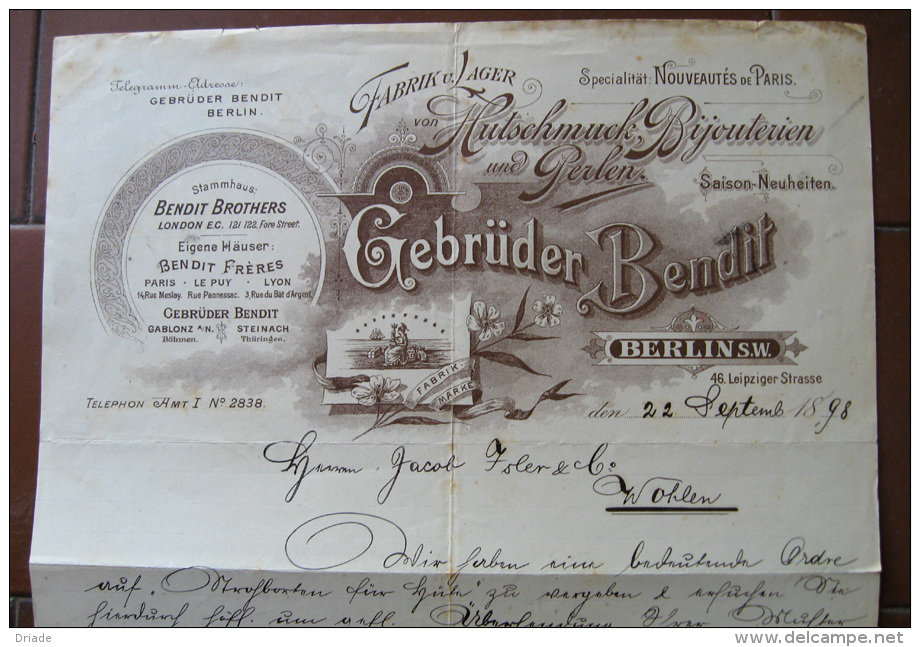 Telegramm-Adresse:
GEBRÜDER BENDIT
BERLIN.
FABRIK U. LAGER
von Hutschmuck, Bijouterien
und Perlen.
Specialität: NOUVEAUTÉS DE PARIS.
Saison-Neuheiten.
Stammhaus:
BENDIT BROTHERS
LONDON E.C. 121/122, Fore Street.
Eigene Häuser:
BENDIT FRÈRES
PARIS - LE PUY - LYON
14, Rue Meslay. Rue Pannessac. 3, Rue du Bât d'Argent.
GEBRÜDER BENDIT
GABLONZ A/N. STEINACH
Böhmen. Thüringen.
Gebrüder Bendit
BERLIN S.W.
46. Leipziger Strasse
FABRIK-
MARKE
TELEPHON AMT I No 2838.
den 22 Septemb 1898
Herren Jacob Isler & Co
Wohlen
Wir haben eine bedeutende Ordre
auf "Strohborten für Hüte" zu vergeben & ersuchen Sie
hierdurch höfl. um gefl. Übersendung Ihrer Muster
Driade
www.delcampe.net